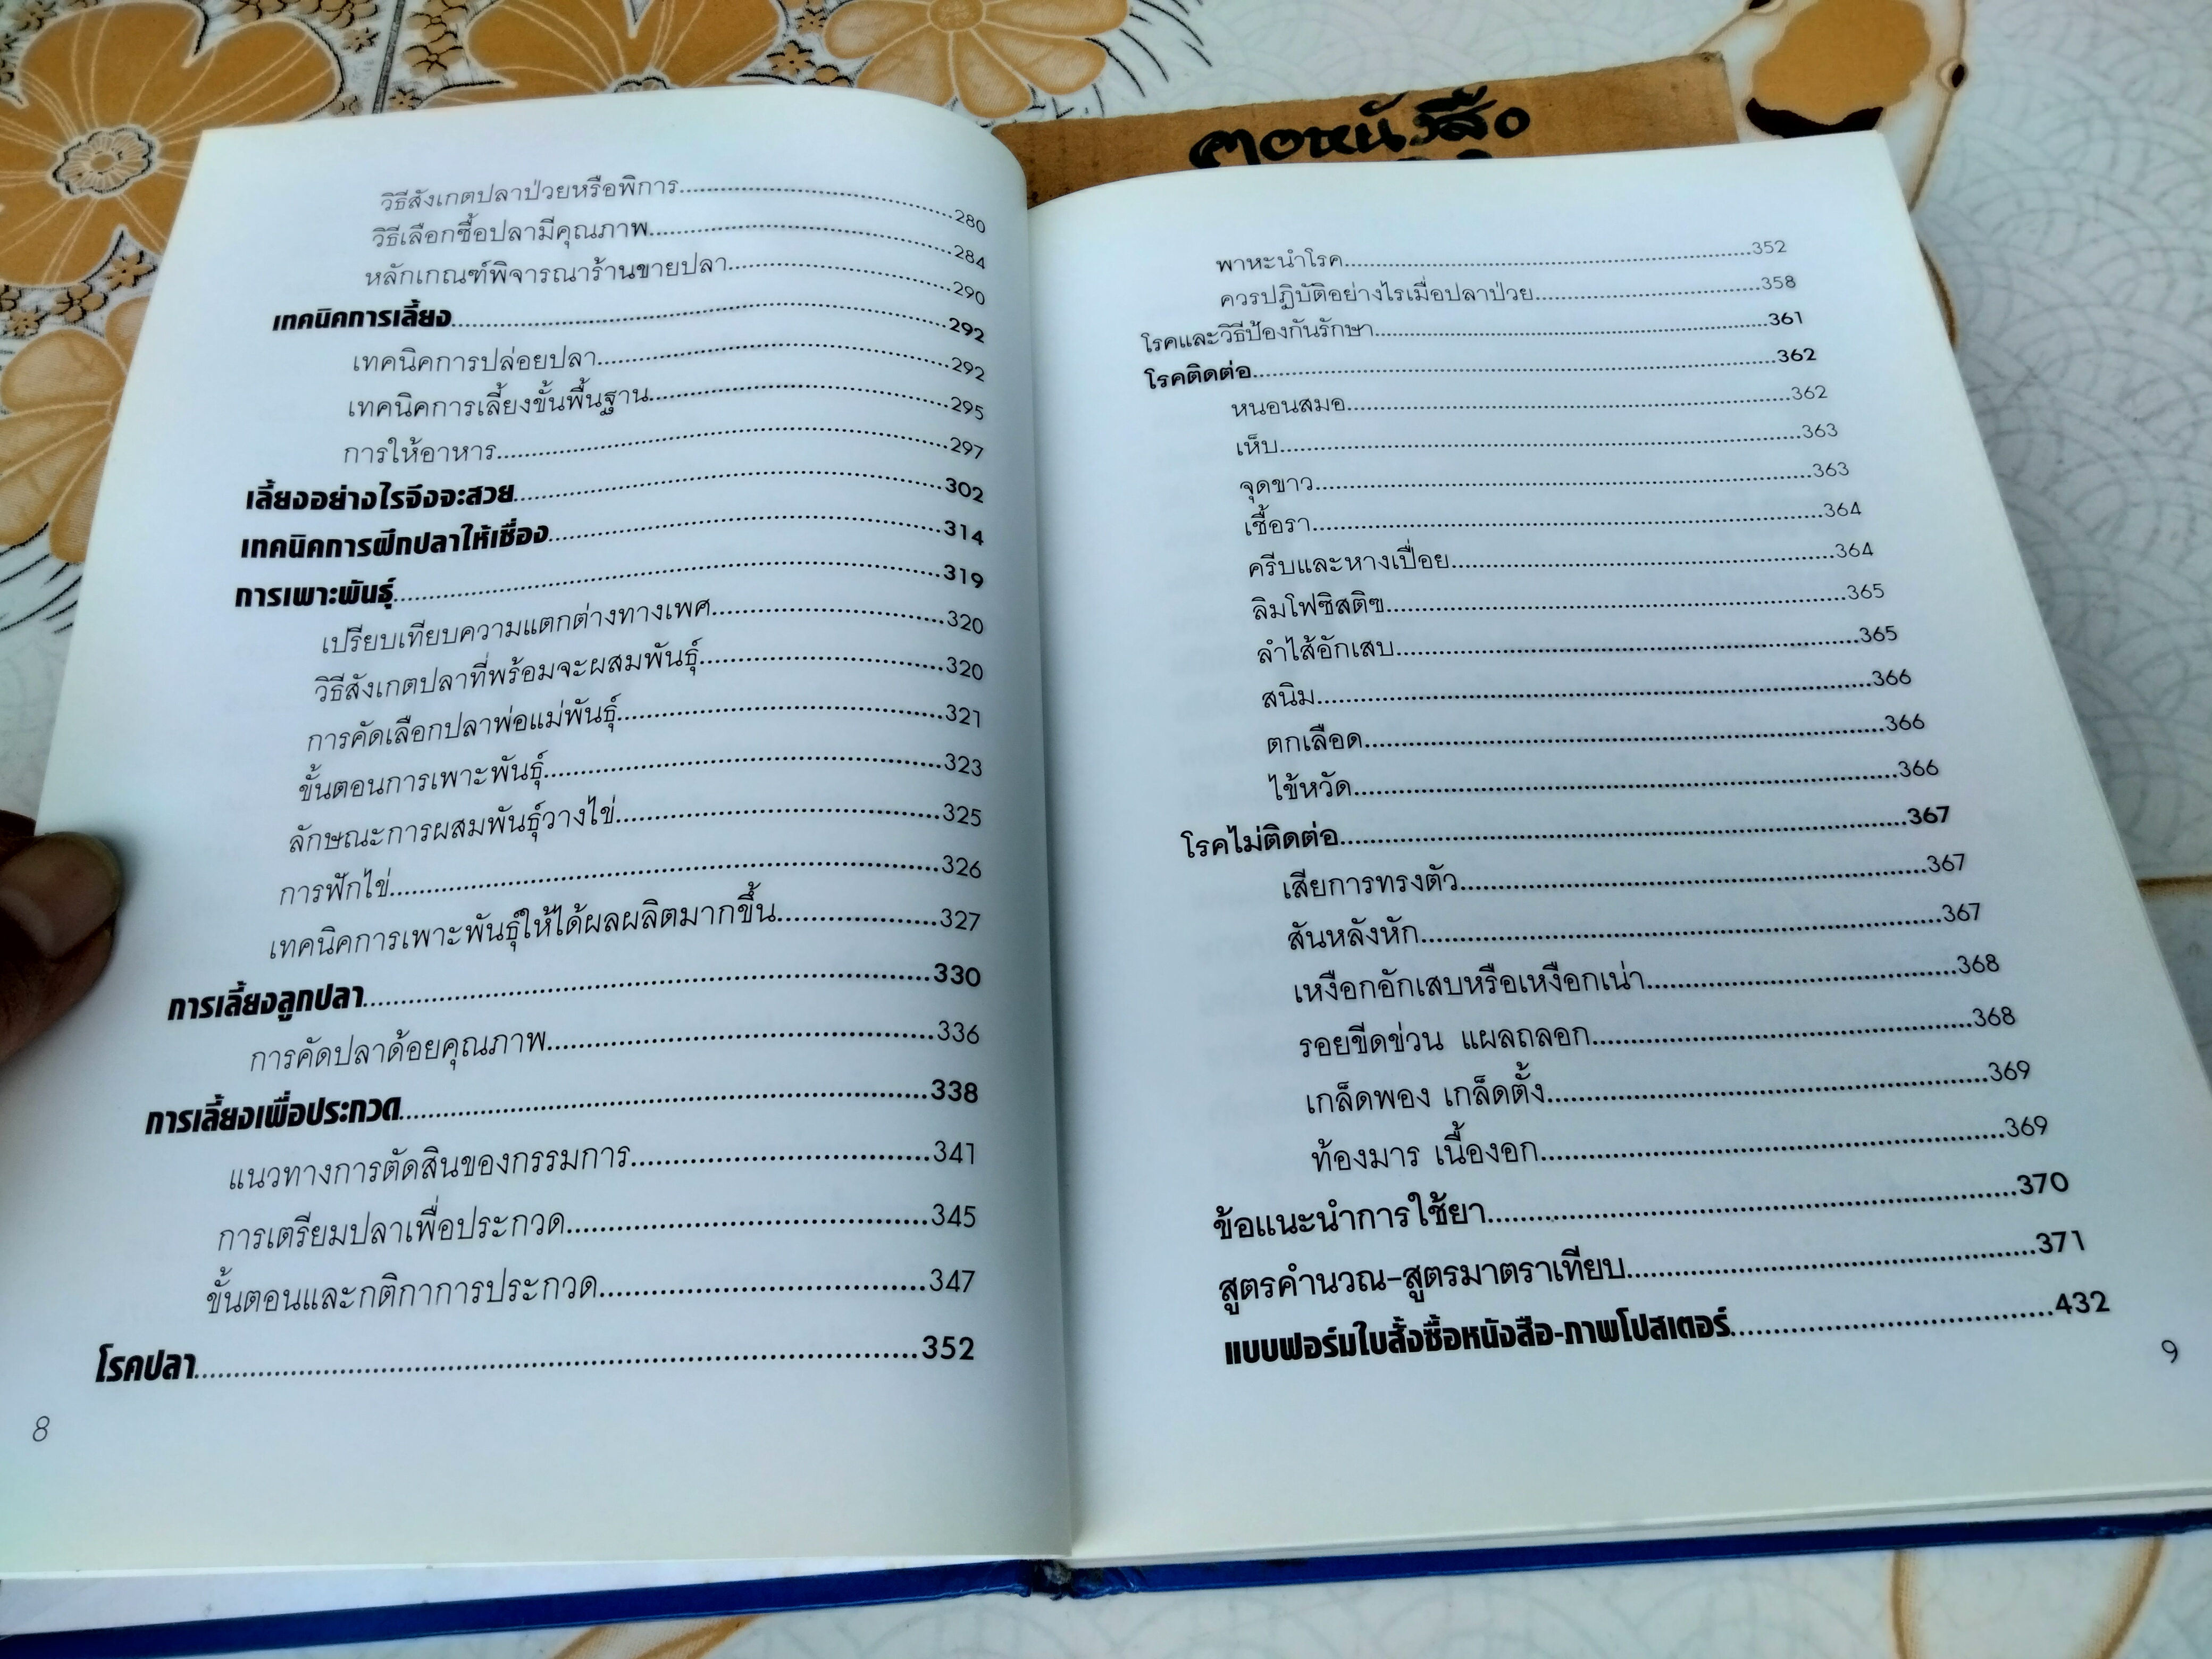 คอหนังสือ
วิธีสังเกตปลาป่วยหรือพิการ....................280
วิธีเลือกซื้อปลามีคุณภาพ....................284
หลักเกณฑ์พิจารณาร้านขายปลา....................290
เทคนิคการเลี้ยง....................292
เทคนิคการปล่อยปลา....................292
เทคนิคการเลี้ยงขั้นพื้นฐาน....................295
การให้อาหาร....................297
เลี้ยงอย่างไรจึงจะสวย....................302
เทคนิคการฝึกปลาให้เชื่อง....................314
การเพาะพันธุ์....................319
เปรียบเทียบความแตกต่างทางเพศ....................320
วิธีสังเกตปลาที่พร้อมจะผสมพันธุ์....................320
การคัดเลือกปลาพ่อแม่พันธุ์....................321
ขั้นตอนการเพาะพันธุ์....................323
ลักษณะการผสมพันธุ์วางไข่....................325
การฟักไข่....................326
เทคนิคการเพาะพันธุ์ให้ได้ผลผลิตมากขึ้น....................327
การเลี้ยงลูกปลา....................330
การคัดปลาด้อยคุณภาพ....................336
การเลี้ยงเพื่อประกวด....................338
แนวทางการตัดสินของกรรมการ....................341
การเตรียมปลาเพื่อประกวด....................345
ขั้นตอนและกติกาการประกวด....................347
โรคปลา....................352
8
พาหะนำโรค....................352
ควรปฏิบัติอย่างไรเมื่อปลาป่วย....................358
โรคและวิธีป้องกันรักษา....................361
โรคติดต่อ....................362
หนอนสมอ....................362
เห็บ....................363
จุดขาว....................363
เชื้อรา....................364
ครีบและหางเปื่อย....................364
ลิมโฟซิสติฃ....................365
ลำไส้อักเสบ....................365
สนิม....................366
ตกเลือด....................366
ไข้หวัด....................366
โรคไม่ติดต่อ....................367
เสียการทรงตัว....................367
สันหลังหัก....................367
เหงือกอักเสบหรือเหงือกเน่า....................368
รอยขีดข่วน แผลถลอก....................368
เกล็ดพอง เกล็ดตั้ง....................369
ท้องมาร เนื้องอก....................369
ข้อแนะนำการใช้ยา....................370
สูตรคำนวณ-สูตรมาตราเทียบ....................371
แบบฟอร์มใบสั่งซื้อหนังสือ-ภาพโปสเตอร์....................432
9